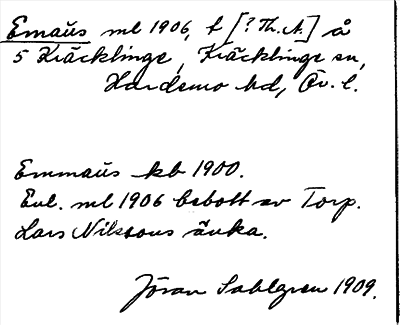 Emaüs ml 1906, t [? Th. A.] å
5 Kräcklinge, Kräcklinge sn,
Hardemo hd, Ör. l.
Emmaüs kb 1900.
Enl. ml 1906 bebott av Torp.
Lars Nilssons änka.
Jöran Sahlgren 1909.